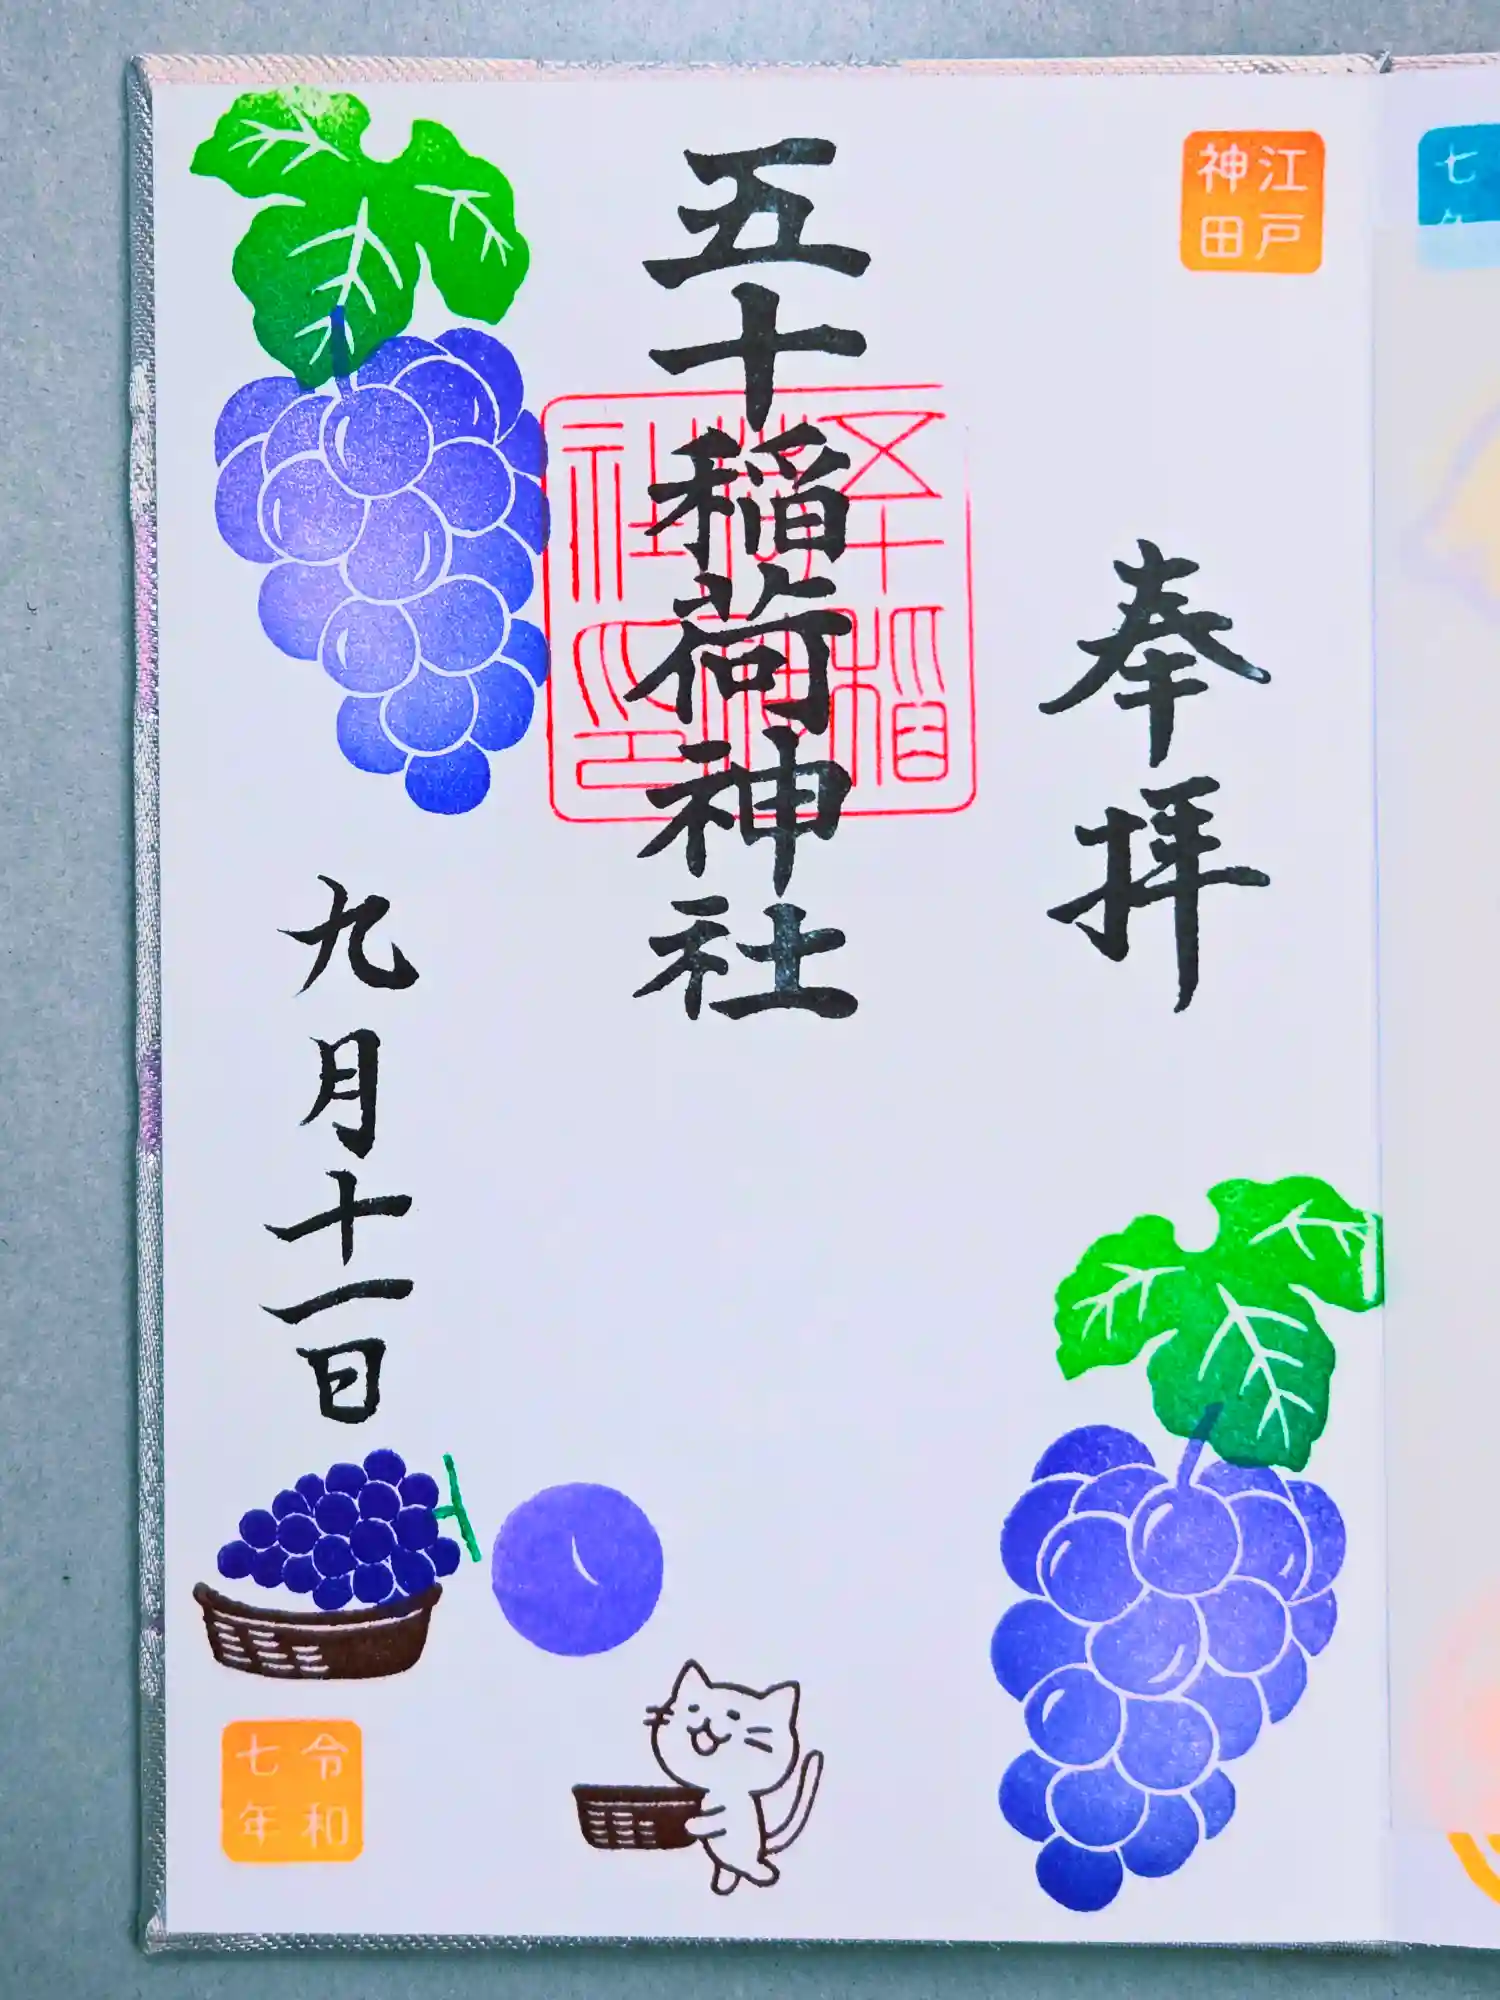 江戸
神田
奉拝
五十稲荷神社
五十稲荷神社印
九月十一日
令和
七年
七